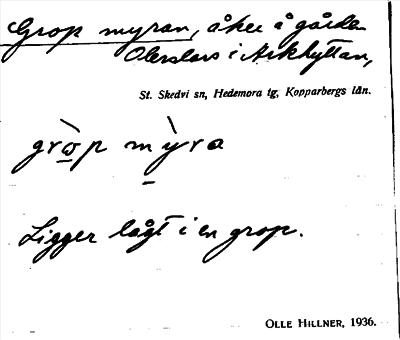 Gropmyran, åker å gården
Olerslars i Arkhyttan,
St. Skedvi sn, Hedemora tg, Kopparbergs län.
gròp mỳra
Ligger lågt i en grop.
OLLE HILLNER, 1936.